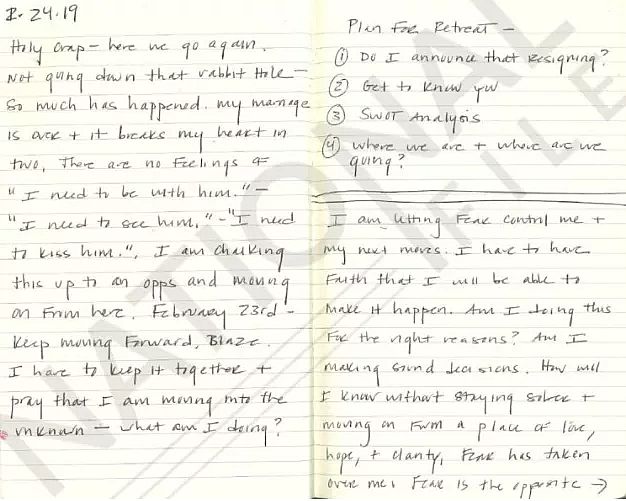 2.24.19
Holy crap - here we go again.
Not going down that rabbit hole -
So much has happened. My marriage
is over + it breaks my heart in
two. There are no feelings of
"I need to be with him." -
"I need to see him." - "I need
to kiss him.". I am chalking
this up to an opps and moving
on from here. February 23rd -
Keep moving forward, Blaze.
I have to keep it together +
pray that I am moving into the
unknown - what am I doing?
Plan for Retreat -
① Do I announce that resigning?
② Get to know you
③ SWOT Analysis
④ where we are + where are we
going?
I am letting fear control me +
my next moves. I have to have
faith that I will be able to
make it happen. Am I doing this
for the right reasons? Am I
making sound decisions. How will
I know without staying sober +
moving on from a place of love,
hope, + clarity, Fear has taken
over me. Fear is the opposite →
NATIONAL FILE